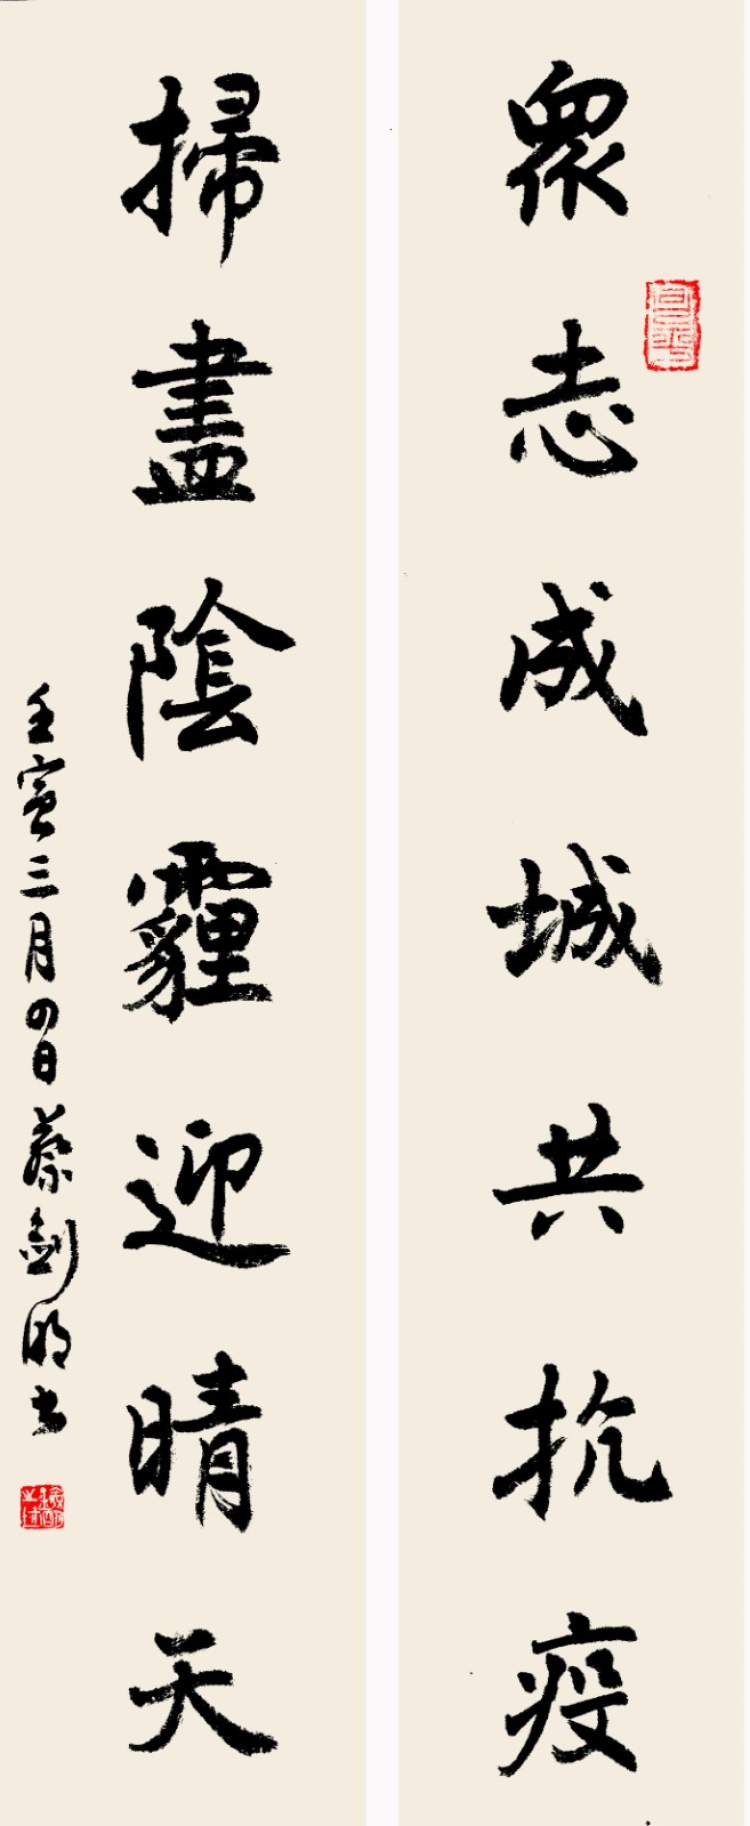 眾志成城共抗疫
掃盡陰霾迎晴天
壬寅三月四日蔡劍明书